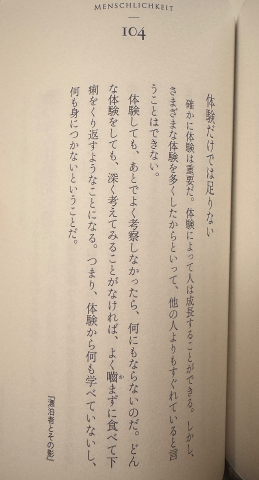 MENSCHLICHKEIT
104
体験だけでは足りない
確かに体験は重要だ。体験によって人は成長することができる。しかし、
さまざまな体験を多くしたからといって、他の人よりもすぐれていると言
うことはできない。
体験しても、あとでよく考察しなかったら、何にもならないのだ。どん
な体験をしても、深く考えてみることがなければ、よく嚙まずに食べて下
痢をくり返すようなことになる。つまり、体験から何も学べていないし、
何も身につかないということだ。
『漂泊者とその影』